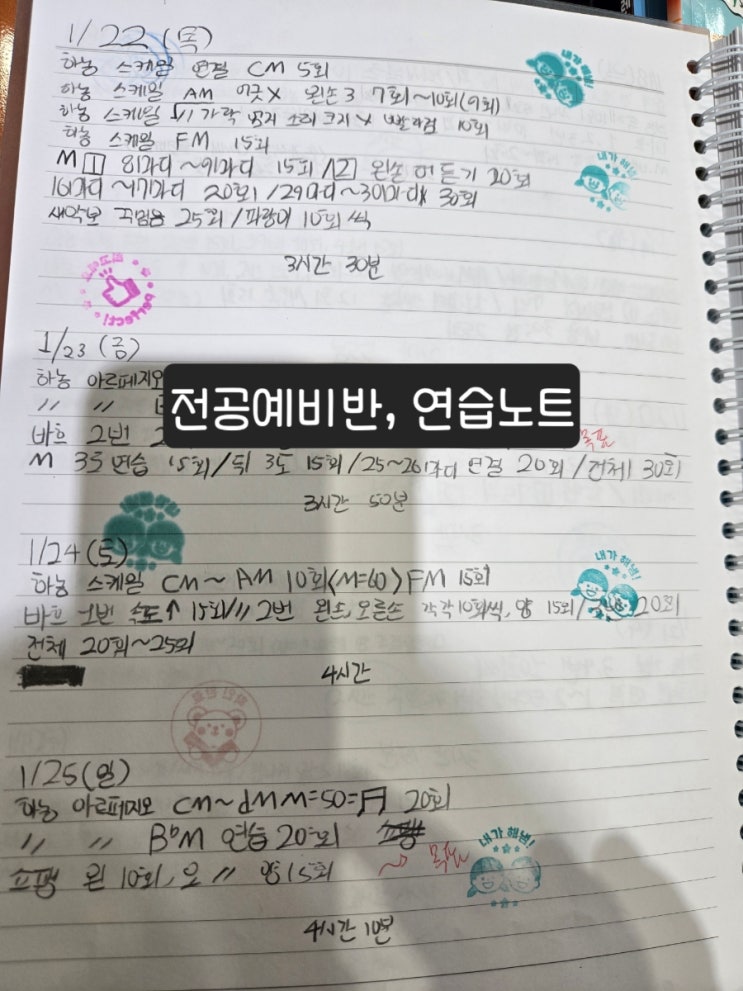 1/22 (목)
하농 스케일 연결 CM 5회
하농 스케일 AM 어긋X 왼손3 7회~10회(9회)
하농 스케일 가락 소리 크지X 10회
하농 스케일 FM 15회
M 1 8마디~9마디 15회 / 2 왼손 더 듣기 20회
16마디~17마디 20회 / 29마디~30마디 30회
새악보 꾸밈음 25회 / 파랑이 10회씩
3시간 30분
perfect!
1/23 (금)
하농 아르페지오
〃 〃
전공예비반, 연습노트
바흐 2번
M 35 연습 15회 / 뒤 3도 15회 / 25~26마디 연결 20회 / 전체 30회
3시간 50분
1/24 (토)
내가 해냄!
하농 스케일 CM~AM 10회 <M=60> FM 15회
바흐 1번 속도↑ 15회 // 2번 왼손, 오른손 각각 10회씩, 양 15회 / 20회
전체 20회~25회
4시간
1/25 (일)
하농 아르페지오 CM~dM M=50= 20회
〃 〃 BbM 연습 20회
내가 해냄!
쇼팽 왼 10회, 오 〃 양 15회
4시간 10분